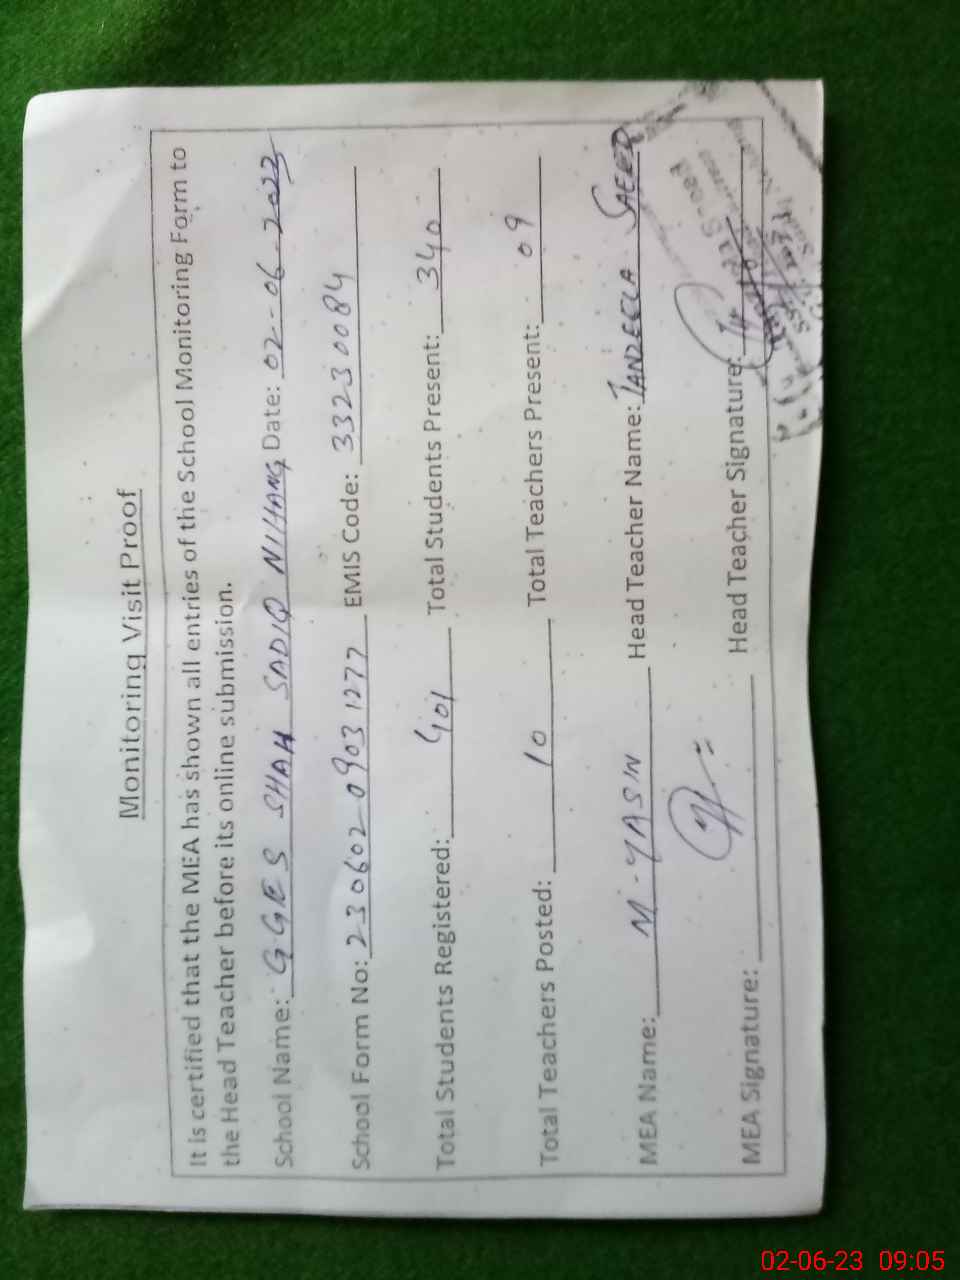 Monitoring Visit Proof
It is certified that the MEA has shown all entries of the School Monitoring Form to
the Head Teacher before its online submission.
School Name: GGES SHAH SADIQ NIHANG Date: 02-06-2023
School Form No: 230602 0903 1277 EMIS Code: 33230084
Total Students Registered: 401 Total Students Present: 340
Total Teachers Posted: 10 Total Teachers Present: 09
MEA Name: M-YASIN Head Teacher Name: TANZEELA SAEED
MEA Signature: Head Teacher Signature:
02-06-23 09:05